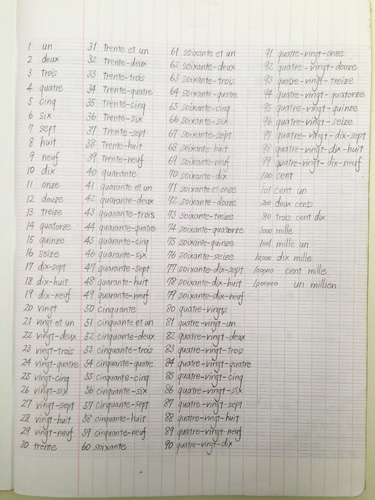 1 un
2 deux
3 trois
4 quatre
5 cinq
6 six
7 sept
8 huit
9 neuf
10 dix
11 onze
12 douze
13 treize
14 quatorze
15 quinze
16 seize
17 dix-sept
18 dix-huit
19 dix-neuf
20 vingt
21 vingt et un
22 vingt-deux
23 vingt-trois
24 vingt-quatre
25 vingt-cinq
26 vingt-six
27 vingt-sept
28 vingt-huit
29 vingt-neuf
30 trente
31 trente et un
32 trente-deux
33 trente-trois
34 trente-quatre
35 trente-cinq
36 trente-six
37 trente-sept
38 trente-huit
39 trente-neuf
40 quarante
41 quarante et un
42 quarante-deux
43 quarante-trois
44 quarante-quatre
45 quarante-cinq
46 quarante-six
47 quarante-sept
48 quarante-huit
49 quarante-neuf
50 cinquante
51 cinquante et un
52 cinquante-deux
53 cinquante-trois
54 cinquante-quatre
55 cinquante-cinq
56 cinquante-six
57 cinquante-sept
58 cinquante-huit
59 cinquante-neuf
60 soixante
61 soixante et un
62 soixante-deux
63 soixante-trois
64 soixante-quatre
65 soixante-cinq
66 soixante-six
67 soixante-sept
68 soixante-huit
69 soixante-neuf
70 soixante-dix
71 soixante et onze
72 soixante-douze
73 soixante-treize
74 soixante-quatorze
75 soixante-quinze
76 soixante-seize
77 soixante-dix-sept
78 soixante-dix-huit
79 soixante-dix-neuf
80 quatre-vingts
81 quatre-vingt-un
82 quatre-vingt-deux
83 quatre-vingt-trois
84 quatre-vingt-quatre
85 quatre-vingt-cinq
86 quatre-vingt-six
87 quatre-vingt-sept
88 quatre-vingt-huit
89 quatre-vingt-neuf
90 quatre-vingt-dix
91 quatre-vingt-onze
92 quatre-vingt-douze
93 quatre-vingt-treize
94 quatre-vingt-quatorze
95 quatre-vingt-quinze
96 quatre-vingt-seize
97 quatre-vingt-dix-sept
98 quatre-vingt-dix-huit
99 quatre-vingt-dix-neuf
100 cent
101 cent un
200 deux cents
310 trois cent dix
1000 mille
1001 mille un
10,000 dix mille
100,000 cent mille
1,000,000 un million